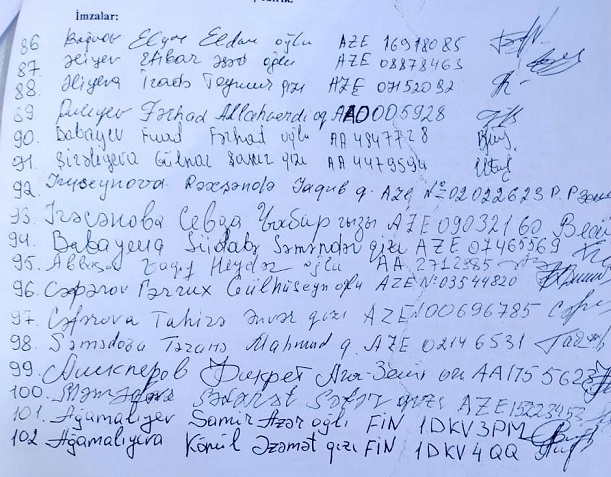 İmzalar:
86 Elçin Eldar oğlu AZE 16918085
87. Əliyev Etibar oğlu AZE 08878463
88. Əliyeva İradə Teymur qızı AZE 07152092
89 Quliyev Fərhad Allahverdi o AA0005928
90. Babayev Fuad Fərhad oğlu AA 4847728
91. Şirəliyeva Gülnar qızı AA 4479594
92. Huseynova Rəxşəndə Yaqub q. AZE № 02022623
93. Һәсәнова Севда Ҹаббар гызы AZE 09032160
94. Babayeva Südabə Səməndər qızı AZE 07465569
95. Heydər oğlu AA 2712885
96. Cəfərov Fərrux Gülhüseyn oğlu AZE № 03544820
97. Cəfərova Tahirə Ənvər qızı AZE № 00696785
98. Təranə Mahmud q. AZE 02146531
99. Алиекперов Фикрет AA 175 5623
100. Səfər qızı AZE 15223452
101. Ağamalıyev Samir Azər oğlu FİN 1DKV3PM
102 Ağamalıyeva Könül Əzəmət qızı FİN 1DKV4QQ